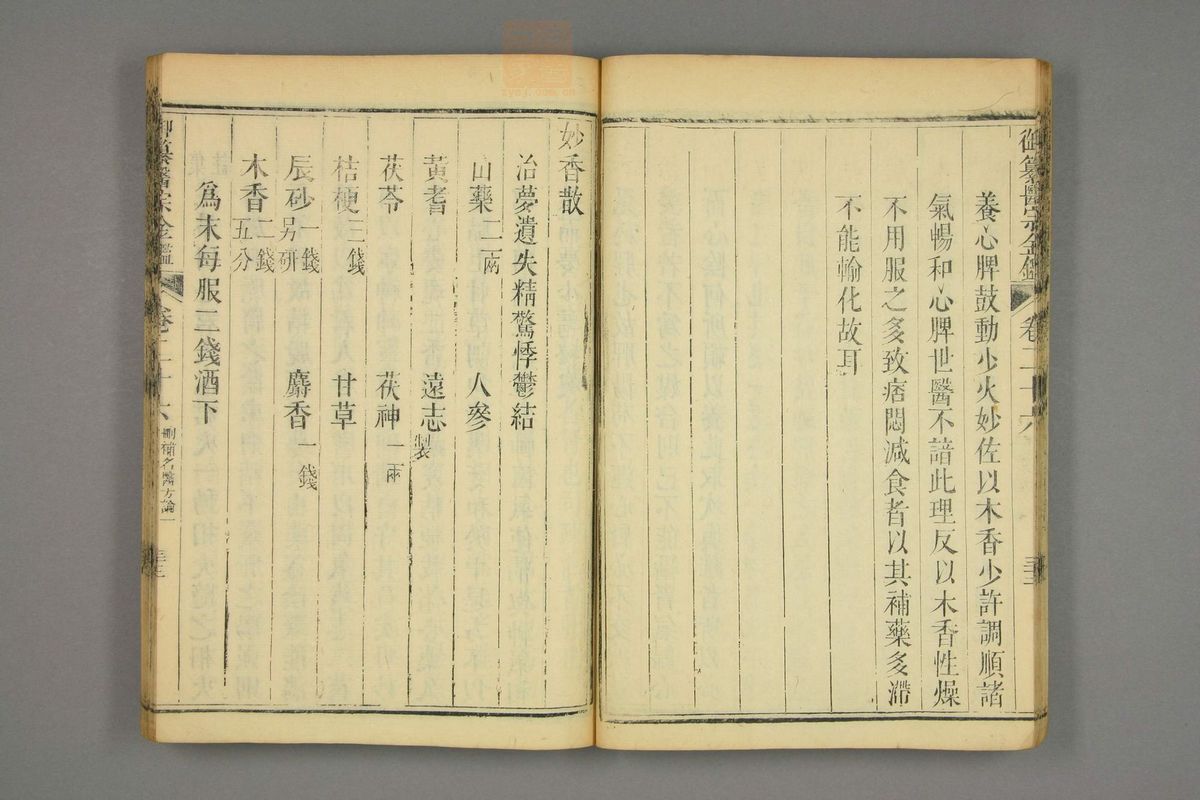 御纂醫宗金鑑 卷二十六
養心脾鼓動少火妙佐以木香少許調順諸
氣暢和心脾世醫不諳此理反以木香性燥
不用服之多致痞悶減食者以其補藥多滯
不能輸化故耳
妙香散
治夢遺失精驚悸鬱結
山藥二兩 人參
黃耆 遠志製
茯苓 茯神一兩
桔梗三錢 甘草
辰砂一錢另研 麝香一錢
木香二錢五分
爲末每服二錢酒下
御纂醫宗金鑑 卷二十六 刪補名醫方論一